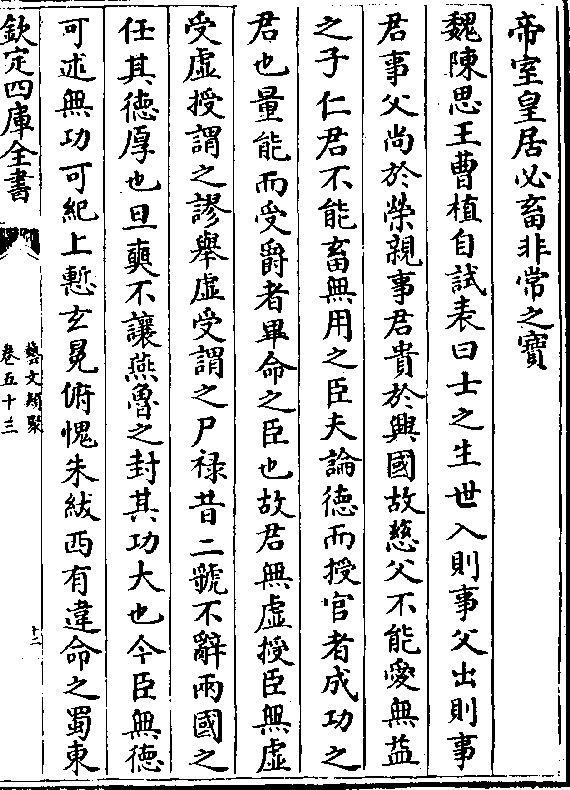 帝室皇居必畜非常之寳
魏陳思王曹植自試表曰士之生世入則事父出則事
君事父尚於榮親事君貴於興國故慈父不能愛無益
之子仁君不能畜無用之臣夫論徳而授官者成功之
君也量能而受爵者畢命之臣也故君無虚授臣無虚
受虚授謂之謬舉虚受謂之尸禄昔二虢不辭兩國之
任其徳厚也旦奭不讓燕魯之封其功大也今臣無徳
可述無功可紀上慙玄冕俯愧朱紱西有違命之蜀東
欽定四庫全書
藝文類聚
卷五十三
十二